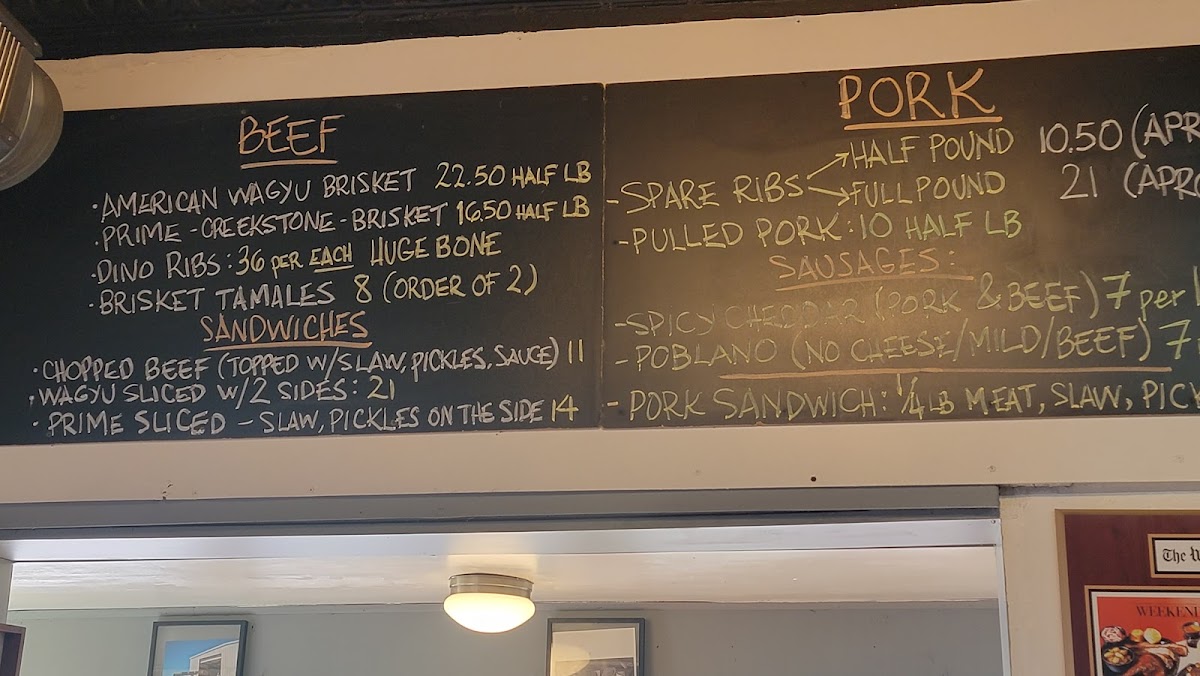 BEEF
· AMERICAN WAGYU BRISKET 22.50 HALF LB
· PRIME - CREEKSTONE - BRISKET 16.50 HALF LB
· DINO RIBS : 36 PER EACH HUGE BONE
· BRISKET TAMALES 8 (ORDER OF 2)
SANDWICHES
· CHOPPED BEEF (TOPPED W/SLAW, PICKLES, SAUCE) 11
· WAGYU SLICED W/2 SIDES: 21
· PRIME SLICED - SLAW, PICKLES ON THE SIDE 14
PORK
- SPARE RIBS
HALF POUND 10.50 (APR
FULL POUND 21 (APRO
- PULLED PORK : 10 HALF LB
SAUSAGES:
- SPICY CHEDDAR (PORK & BEEF) 7 per
- POBLANO (NO CHEESE/MILD/BEEF) 7
- PORK SANDWICH: 1/4 LB MEAT, SLAW, PICK
The
WEEKEND